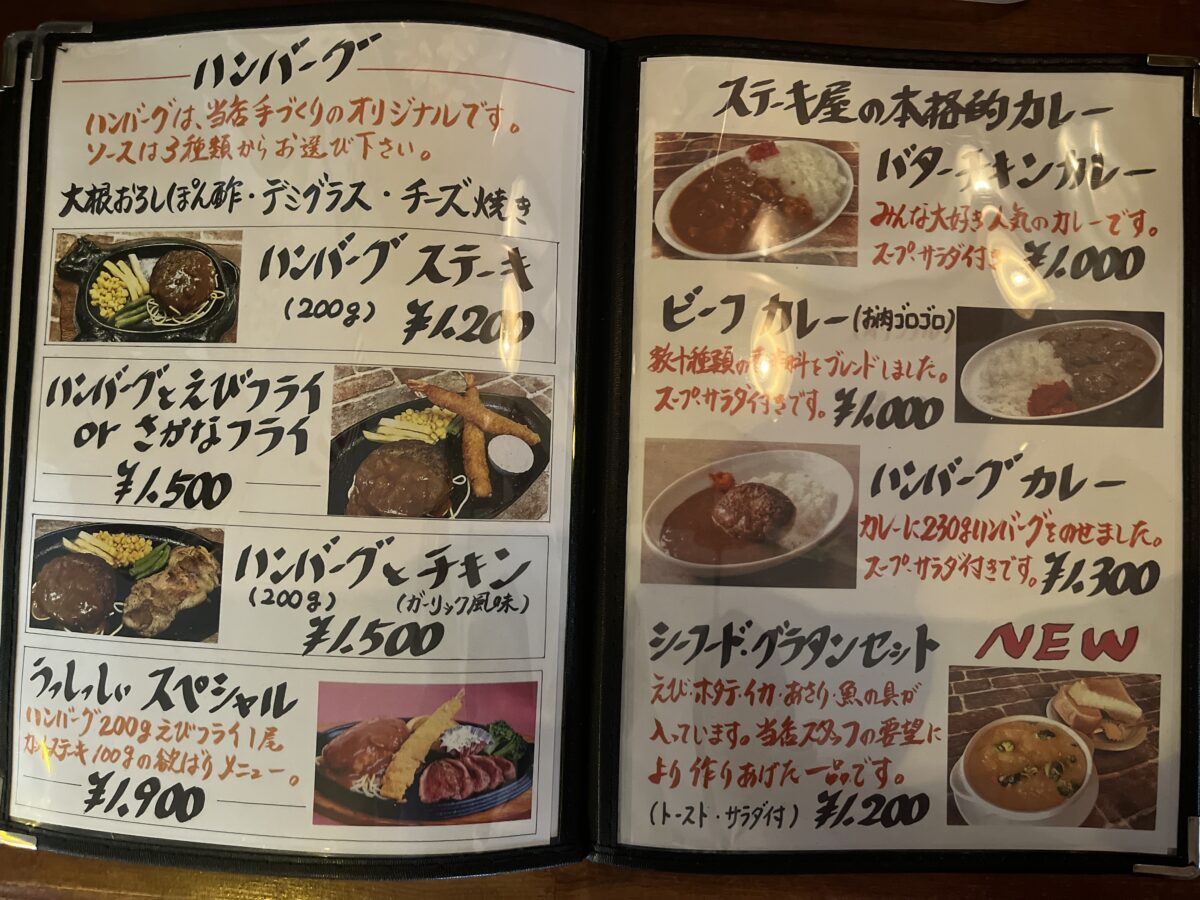 ハンバーグ
ハンバーグは、当店手づくりのオリジナルです。
ソースは3種類からお選び下さい。
大根おろしぽん酢・デミグラス・チーズ焼き
ハンバーグ ステーキ
(200g) ¥1.200
ハンバーグとえびフライ
or さかなフライ
¥1.500
ハンバーグとチキン
(200g) (ガーリック風味)
¥1.500
うっしっしぃ スペシャル
ハンバーグ200gえびフライ1尾
カットステキ100gの欲ばりメニュー。
¥1.900
ステーキ屋の本格的カレー
バターチキンカレー
みんな大好き人気のカレーです。
スープ・サラダ付き ¥1.000
ビーフ カレー(お肉ゴロゴロ)
数十種類の 料をブレンドしました。
スープ・サラダ付きです。 ¥1.000
ハンバーグ カレー
カレーに230gハンバーグをのせました。
スープ・サラダ付きです。 ¥1.300
シーフード・グラタンセット NEW
えび・ホタテ・イカ・あさり・魚の具が
入っています。当店スタッフの要望に
より作りあげた一品です。
(トースト・サラダ付) ¥1.200